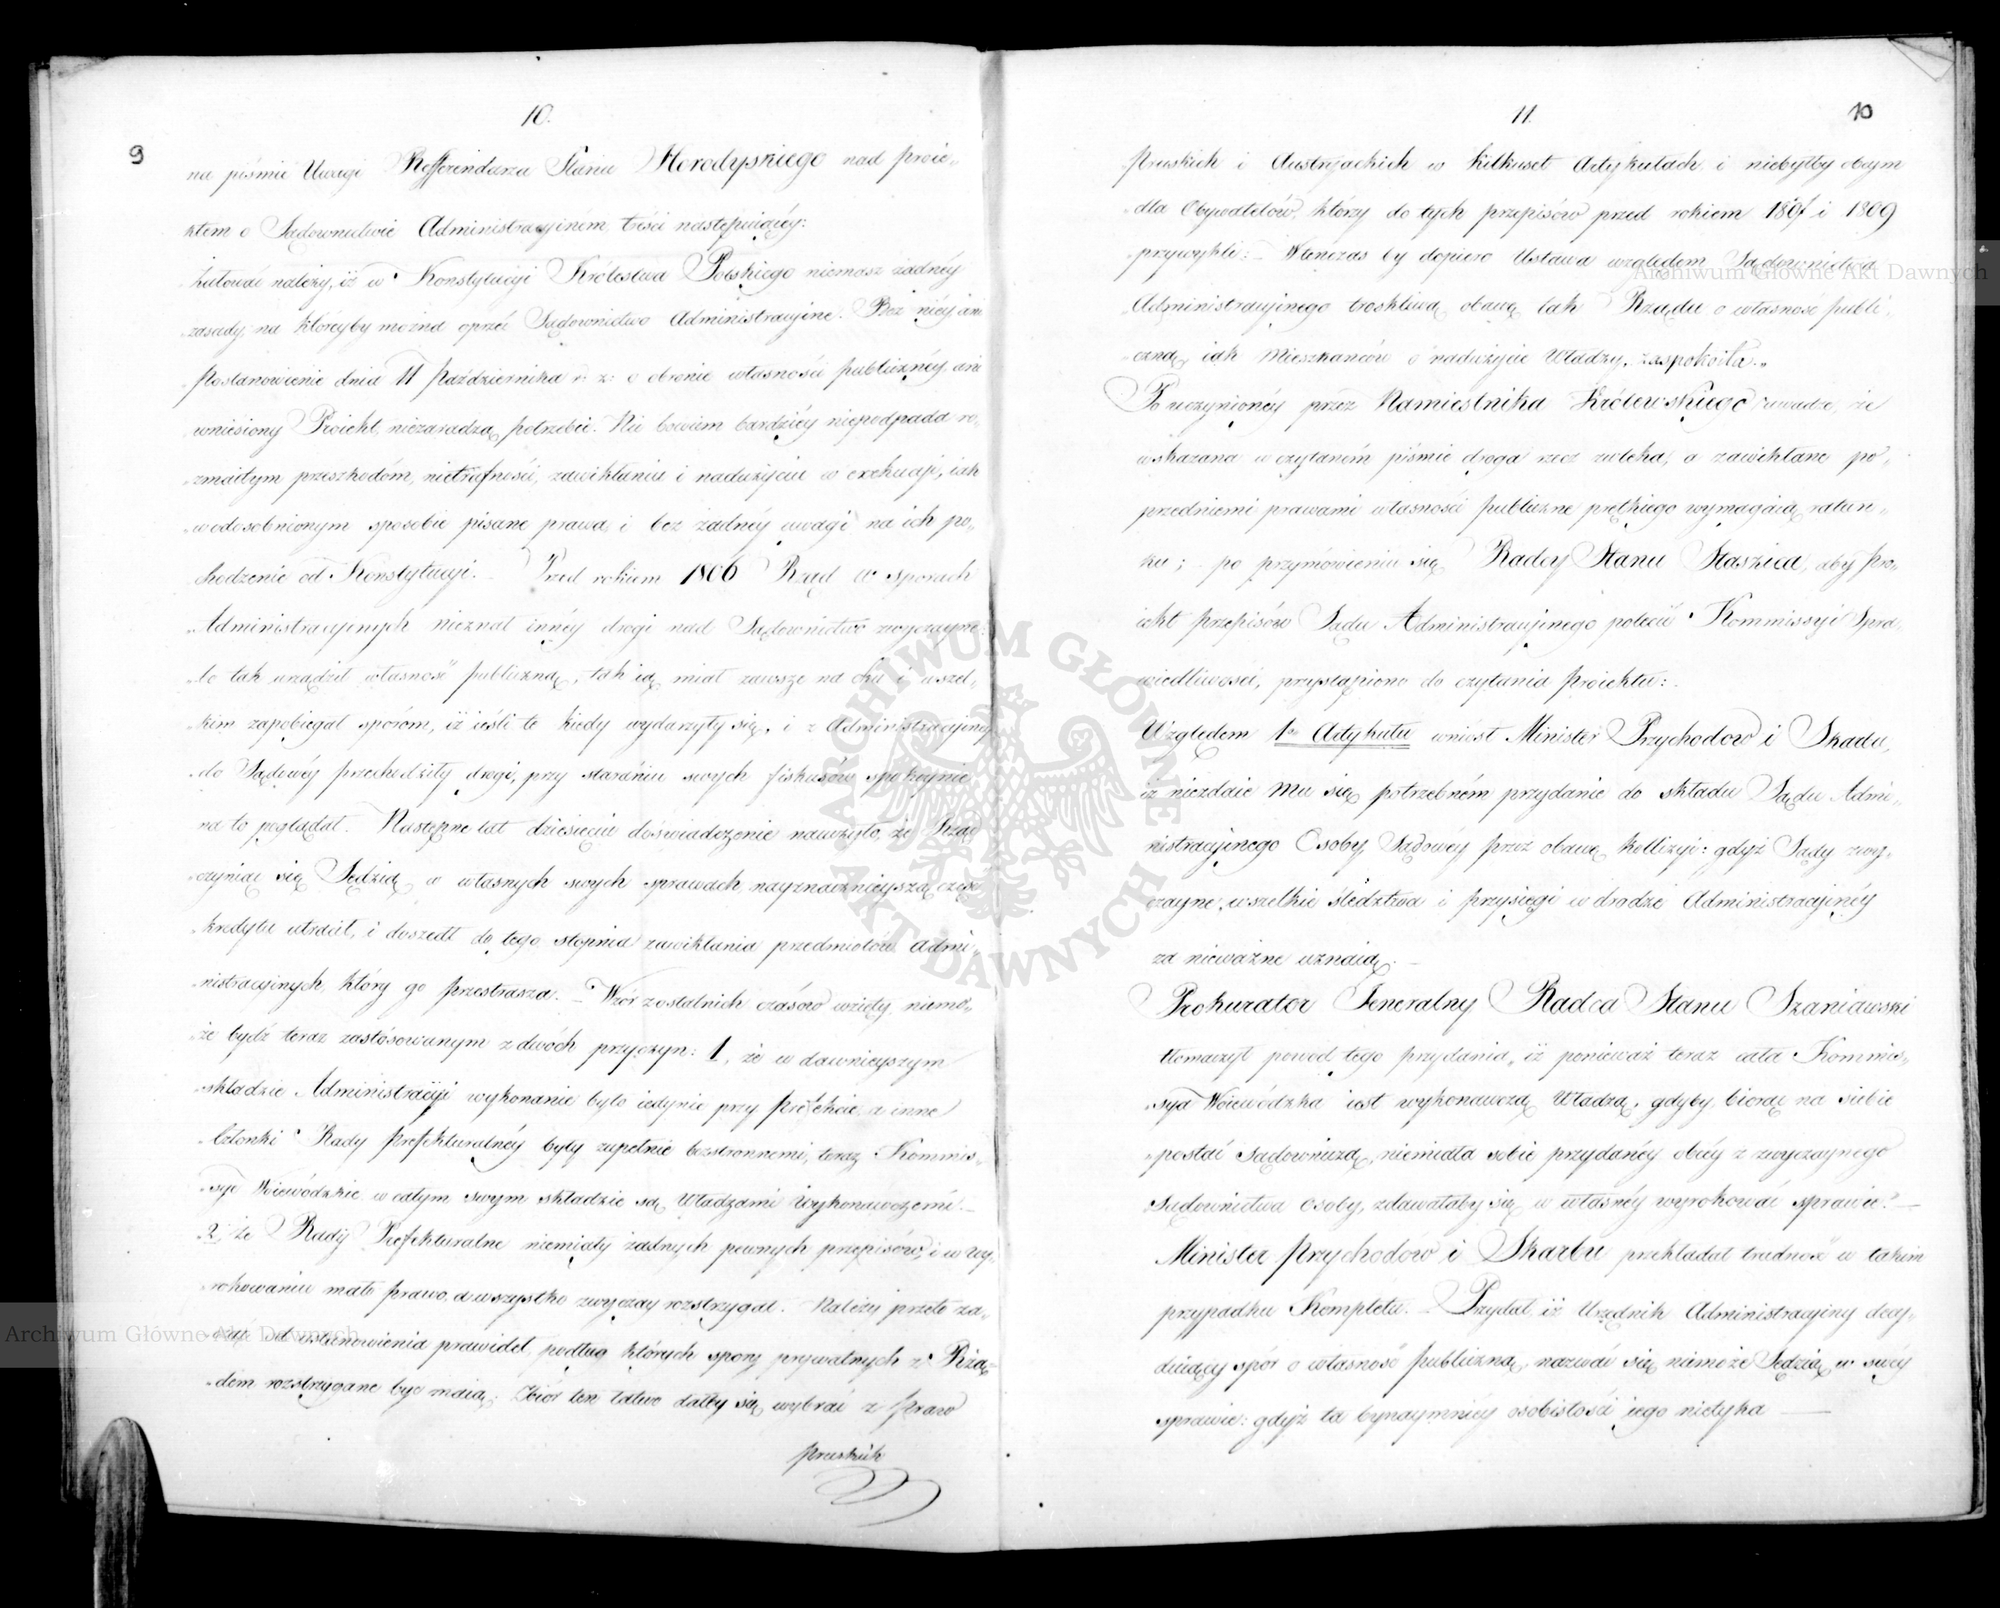 10.
9
na piśmie Uwagi Refferendarza Stanu Horodyskiego nad proie„
ktem o Sądownictwie Administracyinem, treści następuiącéy:
„żałować należy, iż w Konstytucyi Królestwa Polskiego niemasz żadnéy
„zasady, na któréyby można oprzéć Sądownictwo Administracyine. Bez niéy ani
„Postanowienie dnia 11 Października r: z: o obronie własności publicznéy, ani
„wniesiony Proiekt, niezaradzą potrzebie. Nic bowiem bardziéy niepodpada ro„
„zmaitym przeszkodóm, nietrafności, zawikłaniu i nadużyciu w exekucyi, iak
„w odosobnionym sposobie pisane prawa, i bez żadnéy uwagi na ich po„
„chodzenie od Konstytucyi. — Przed rokiem 1806 Rząd w sporach
„Administracyinych nieznał innéy drogi nad Sądownictwo zwyczayne:
„le tak urządził własność publiczną, tak ią miał zawsze na oku i wszel„
„kim zapobiegał sporóm, iż ieśli te kiedy wydarzyły się, i z Administracyinéy
„do Sądowéy przechodziły drogi, przy staraniu swych fiskusów spokoynie
„na to poglądał. Następne lat dziesięciu doświadczenie nauczyło, że Rząd
„czyniąc się Sędzią w własnych swych sprawach nayznacznieyszą część
„kredytu utracił, i doszedł do tego stopnia zawikłania przedmiotów admi„
„nistracyinych, który go przestrasza. — Wzór z ostatnich czasów wzięty, niemo„
„że bydź teraz zastósowanym z dwóch przyczyn: 1, że w dawnieyszym
„składzie Administracyi wykonanie było iedynie przy Prefekcie, a inne
„Członki Rady Prefekturalnéy były zupełnie bezstronnemi, teraz Kommis„
„sye Woiewódzkie w całym swym składzie są Władzami wykonawczemi. —
„2, że Rady Prefekturalne niemiały żadnych pewnych przepisów, i w wy„
„rokowaniu mało prawo, a wszystko zwyczay rozstrzygał. Należy przeto za„
„cząć od ustanowienia prawideł, podług których spory prywatnych z Rzą„
„dem rozstrzygane być maią. Zbiór ten łatwo dałby się wybrać z Praw
pruskich
11.
10
Pruskich i Austryackich w kilkuset Artykułach, i niebyłby obcym
„dla Obywatelów, którzy do tych przepisów przed rokiem 1807 i 1809
„przywykli: — Wówczas by dopiero Ustawa względem Sądownictwa
„Administracyinego troskliwą obawę tak Rządu o własność publi„
„czną, iak Mieszkańców o nadużycie Władzy, zaspokoiła.„
Po uczynionéy przez Namiestnika Królewskiego uwadze, że
wskazana w czytaném piśmie droga rzecz zwleka, a zawikłane po„
przedniemi prawami własności publiczne prętkiego wymagaią ratun„
ku; — po przymówieniu się Radcy Stanu Staszica, aby Pro„
iekt przepisów Sądu Administracyinego polecić Kommissyi Spra„
wiedliwości, przystąpiono do czytania Proiektu: —
Względem 1go Artykułu wniósł Minister Przychodów i Skarbu,
iż niezdaie mu się potrzebném przydanie do składu Sądu Admi„
nistracyinego Osoby Sądowéy, przez obawę kollizyi: gdyż Sądy zwy„
czayne, wszelkie śledztwa i przysięgi w drodze Administracyinéy
za nieważne uznaią. —
Prokurator Jeneralny Radca Stanu Szaniawski
tłomaczył powód tego przydania, „iż ponieważ teraz cała Kommis„
„sya Woiewódzka iest wykonawczą Władzą, gdyby, biorąc na siebie
„postać Sądowniczą, niemiała sobie przydanéy obcéy z zwyczaynego
Sądownictwa Osoby, zdawałaby się w własnéy wyrokować sprawie." —
Minister Przychodów i Skarbu przekładał trudność w takim
przypadku Kompletu. — Przydał, iż Urzędnik Administracyiny decy„
duiący spór o własność publiczną, nazwać się niemoże Sędzią w swéy
sprawie: gdyż ta bynaymniéy osobistości iego nietyka —
Archiwum Główne Akt Dawnych
Archiwum Główne Akt Dawnych
ARCHIWUM GŁÓWNE AKT DAWNYCH